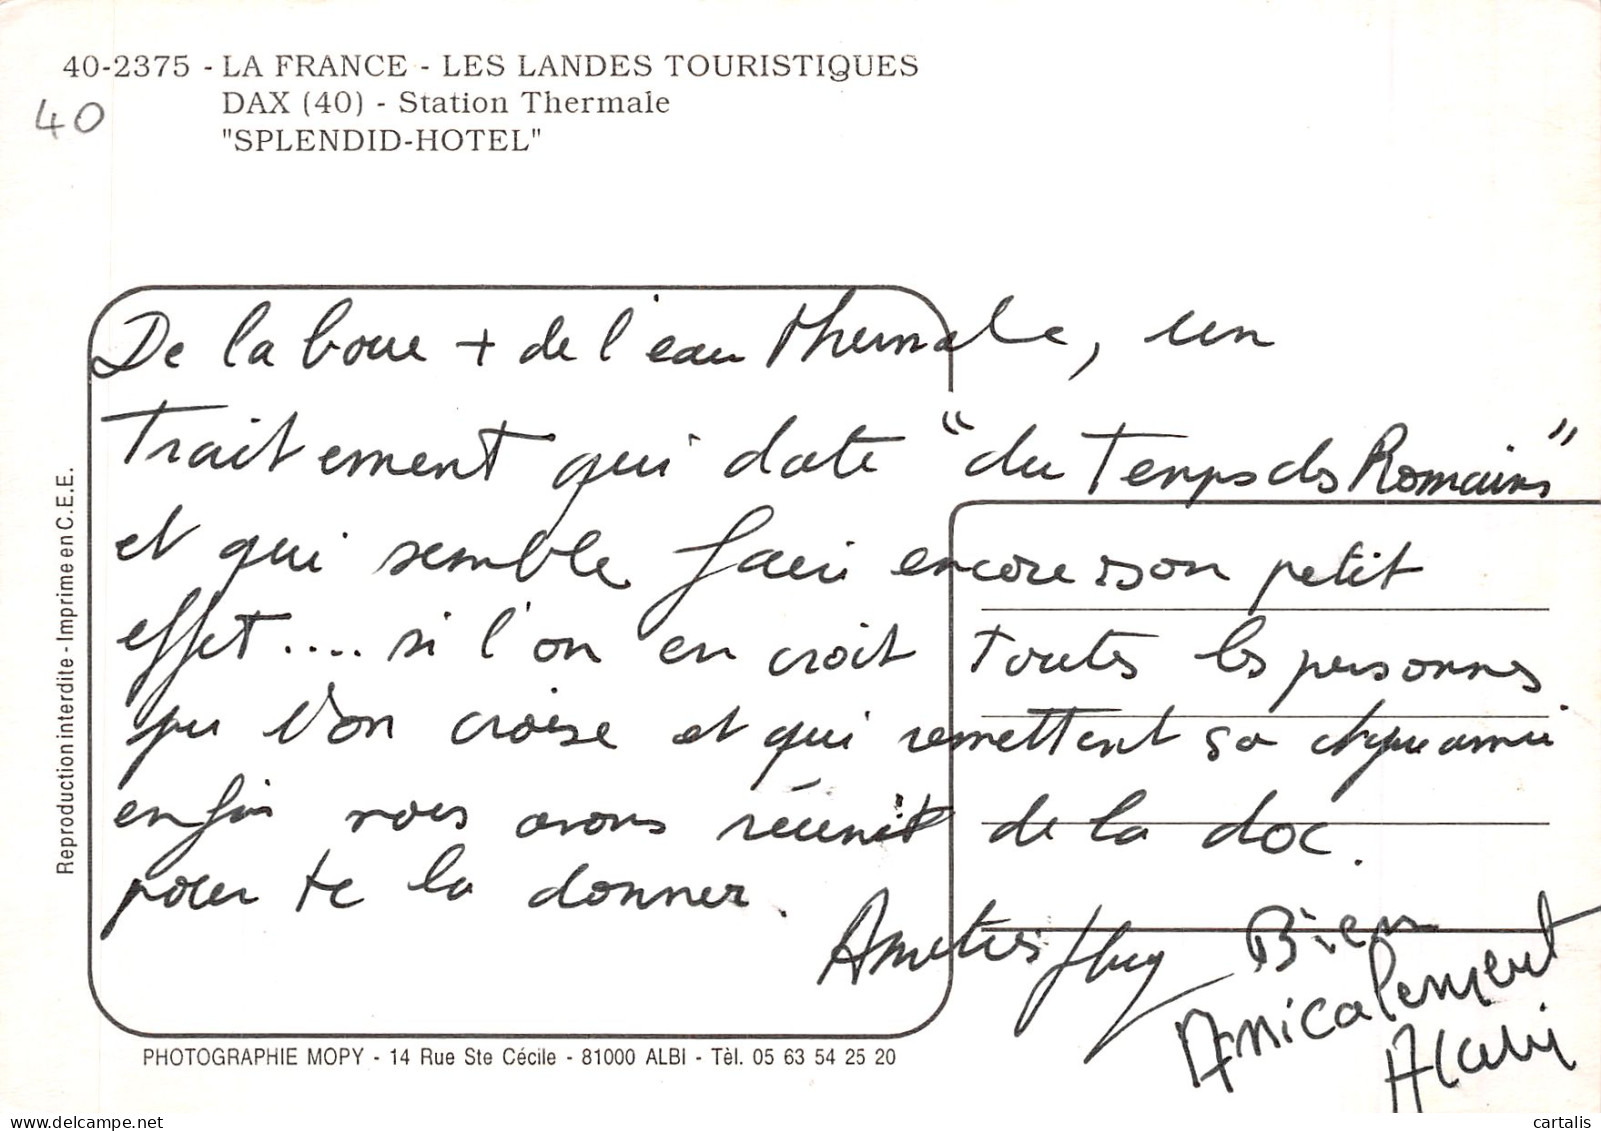 40-2375 - LA FRANCE - LES LANDES TOURISTIQUES
40
DAX (40) - Station Thermale
"SPLENDID-HOTEL"
De la boue + de l'eau thermale, un
Traitement qui date "du Temps des Romains"
et qui semble faire encore son petit
effet.... si l'on en croit toutes les personnes
que l'on croise et qui remettent ça chaque année
enfin nous avons réunit de la doc.
pour te la donner.
Amitiés
Bien
Amicalement
Alain
Reproduction interdite - Imprime en C.E.E.
PHOTOGRAPHIE MOPY - 14 Rue Ste Cécile - 81000 ALBI - Tèl. 05 63 54 25 20
delcampe.net
cartalis